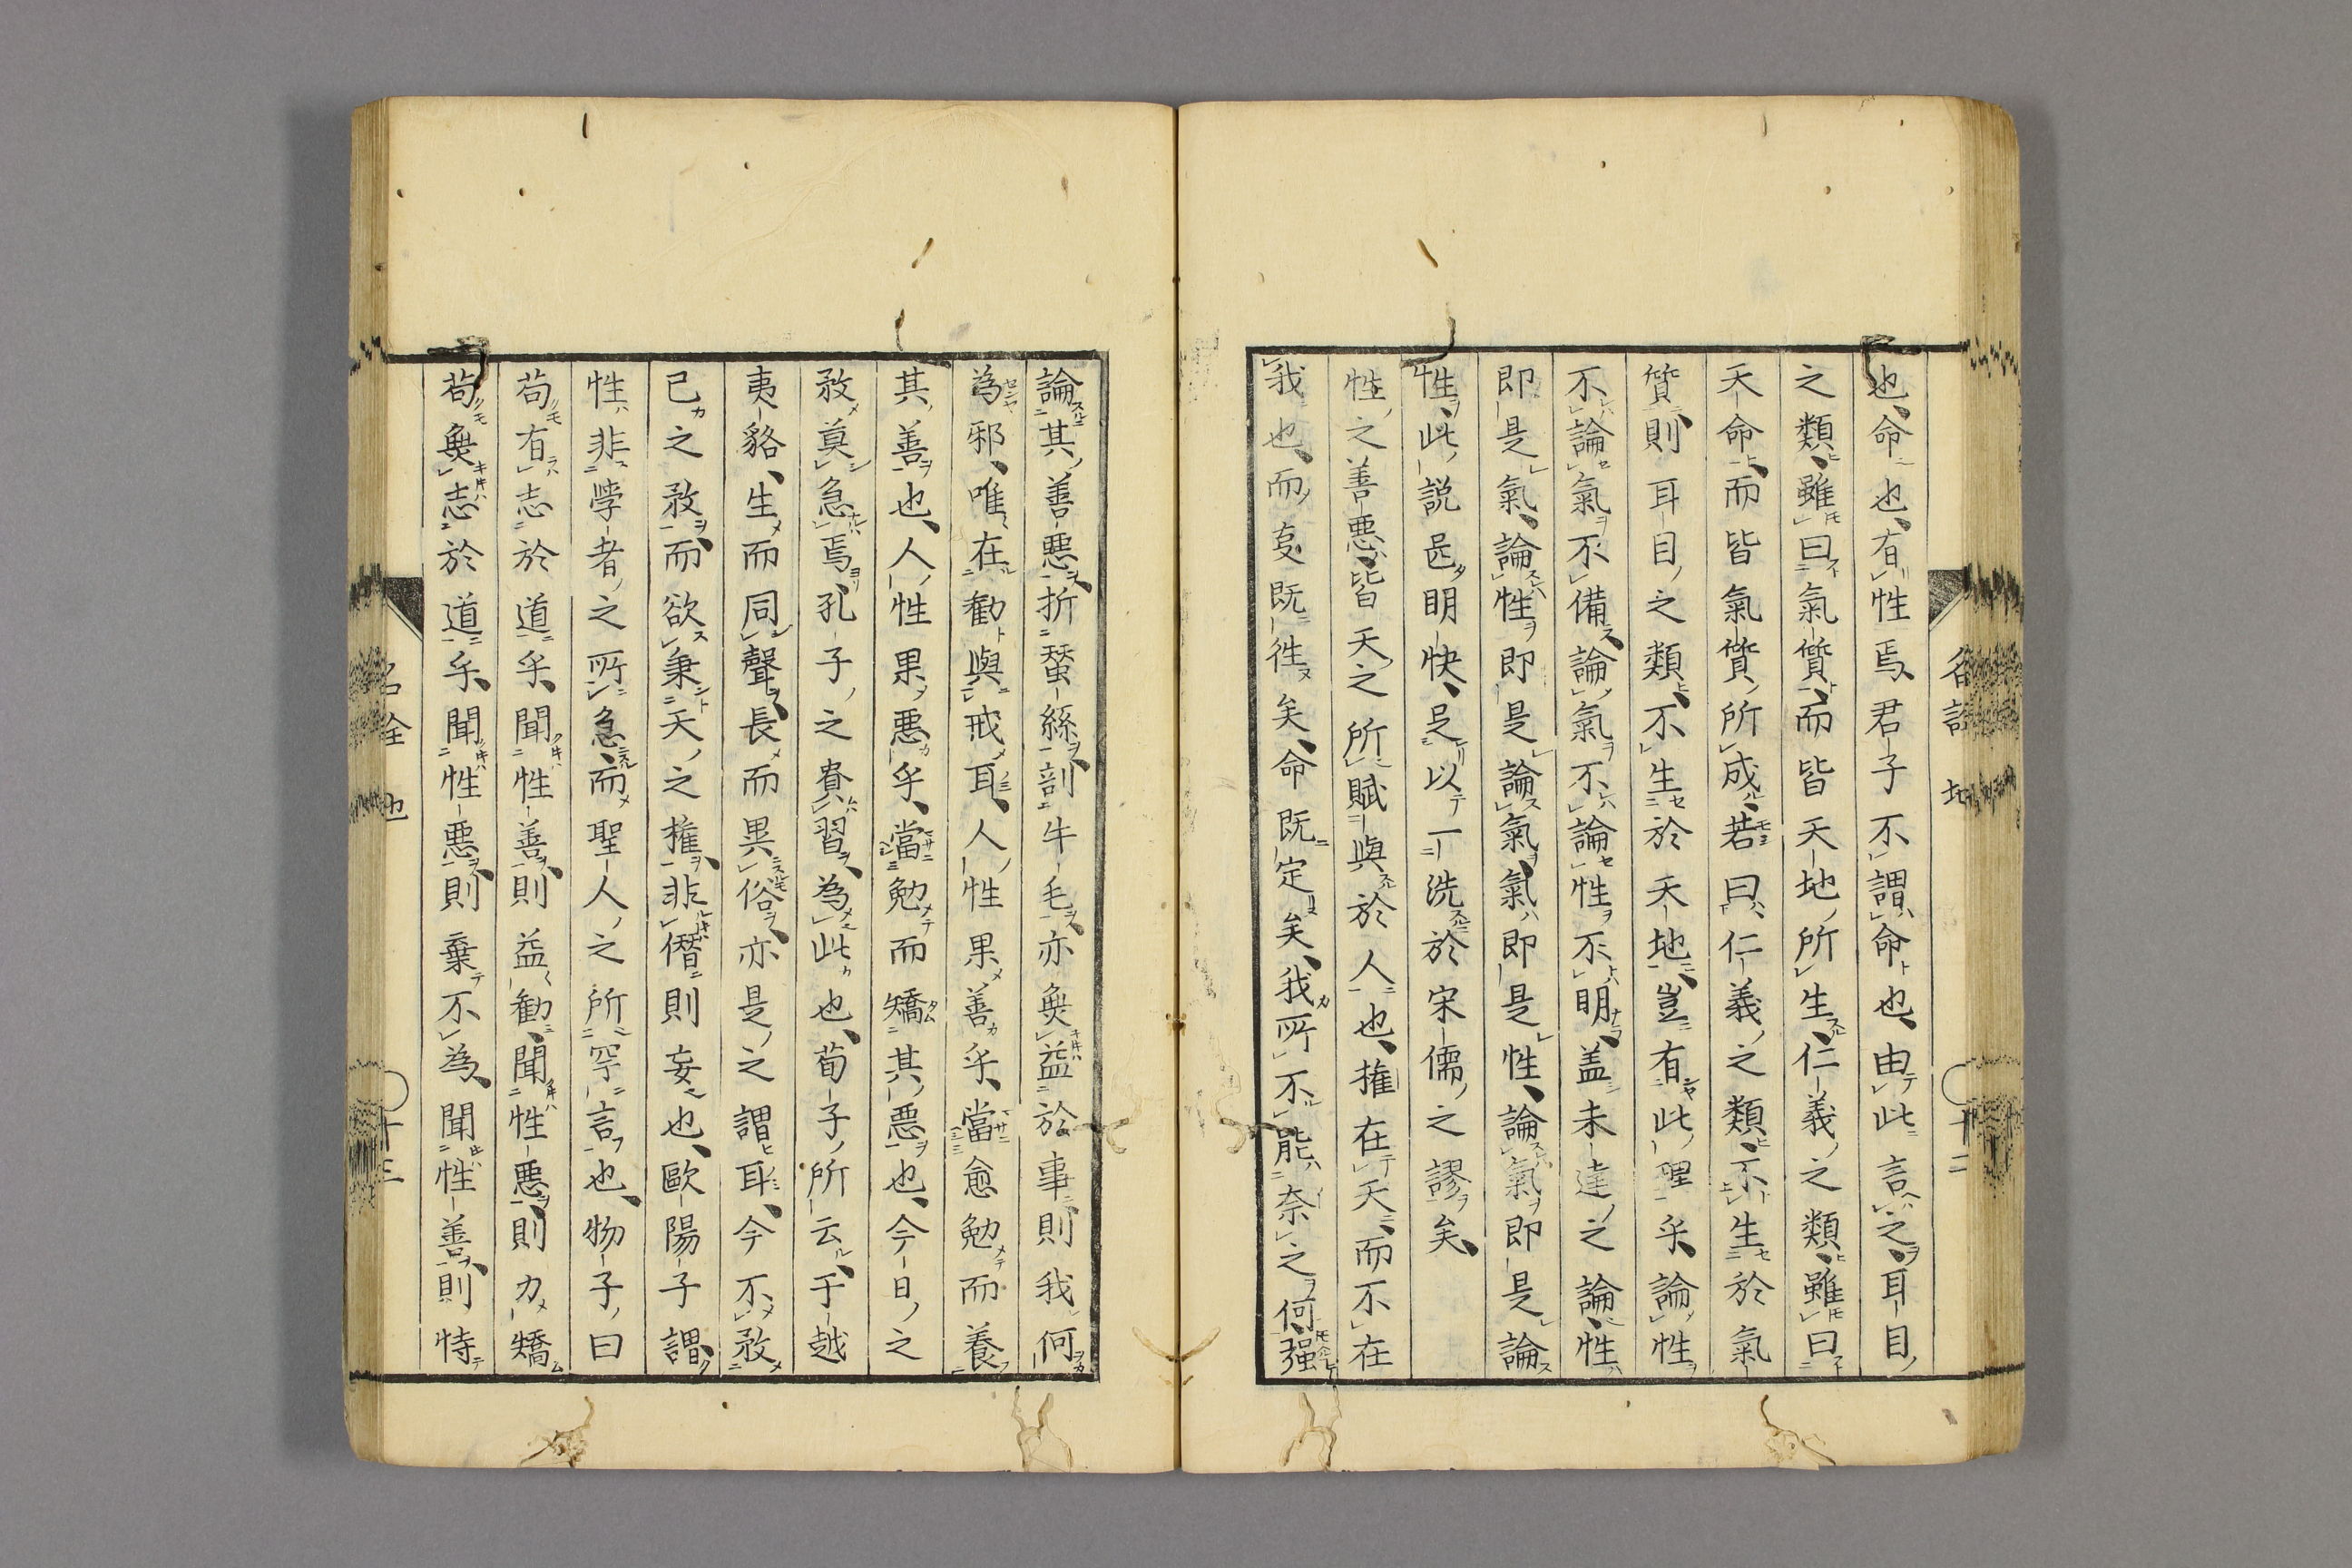 名詮 地 十二
也、命也、有性焉、君子不謂命也、由此言之、耳目
之類、雖曰氣質、而皆天地所生、仁義之類、雖曰
天命、而皆氣質所成、若曰仁義之類、不生於氣
質、則耳目之類、不生於天地、豈有此理乎、論性
不論氣不備、論氣不論性不明、盖未達之論、性
即是氣、論性即是論氣、氣即是性、論氣即是論
性、此說甚明快、足以一洗於宋儒之謬矣、
性之善惡、皆天之所賦與於人也、權在天、而不在
我也、而叓既徃矣、命既定矣、我所不能奈之何、强
論其善惡、折蠶絲、剖牛毛、亦無益於事、則我何
為邪、唯在勸與戒耳、人性果善乎、當愈勉而養
其善也、人性果惡乎、當勉而矯其惡也、今日之
敎莫急焉、孔子之貴習、為此也、荀子所云、于越
夷貉、生而同聲、長而異俗、亦是之謂耳、今不敎
己之敎、而欲秉天之權、非僭則妄也、歐陽子謂
性非學者之所急、而聖人之所罕言也、物子曰
苟有志於道乎、聞性善、則益勸、聞性惡、則力矯
苟無志於道乎、聞性惡、則棄不為、聞性善、則恃
名詮 地 十三